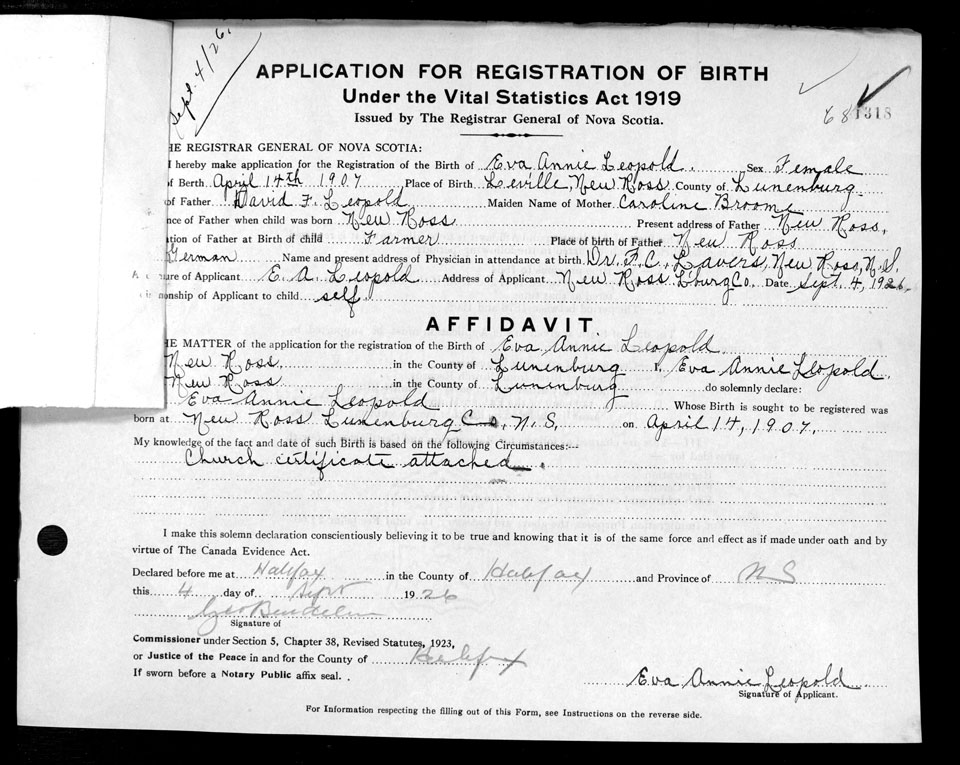 Sept. 4/26.
APPLICATION FOR REGISTRATION OF BIRTH
Under the Vital Statistics Act 1919
Issued by The Registrar General of Nova Scotia.
68 1318
HE REGISTRAR GENERAL OF NOVA SCOTIA:
I hereby make application for the Registration of the Birth of Eva Annie Leopold. Sex Female
of Birth April 14th 1907 Place of Birth Leville, New Ross County of Lunenburg
of Father David F. Leopold Maiden Name of Mother Caroline Broome
nce of Father when child was born New Ross Present address of Father New Ross,
tion of Father at Birth of child Farmer Place of birth of Father New Ross
German Name and present address of Physician in attendance at birth Dr. F. C. Lavers, New Ross, N.S.
ure of Applicant E. A. Leopold Address of Applicant New Ross L'burg Co. Date Sept. 4, 1926.
onship of Applicant to child self.
AFFIDAVIT.
HE MATTER of the application for the registration of the Birth of Eva Annie Leopold
New Ross. in the County of Lunenburg I, Eva Annie Leopold.
New Ross in the County of Lunenburg do solemnly declare:
Eva Annie Leopold Whose Birth is sought to be registered was
born at New Ross Lunenburg Co, N.S. on April 14, 1907.
My knowledge of the fact and date of such Birth is based on the following Circumstances:--
Church certificate attached.
I make this solemn declaration conscientiously believing it to be true and knowing that it is of the same force and effect as if made under oath and by
virtue of The Canada Evidence Act.
Declared before me at Halifax in the County of Halifax and Province of N S
this 4 day of Sept 1926
Signature of
Commissioner under Section 5, Chapter 38, Revised Statutes, 1923,
or Justice of the Peace in and for the County of Halifax
If sworn before a Notary Public affix seal. .
Eva Annie Leopold
Signature of Applicant.
For Information respecting the filling out of this Form, see Instructions on the reverse side.